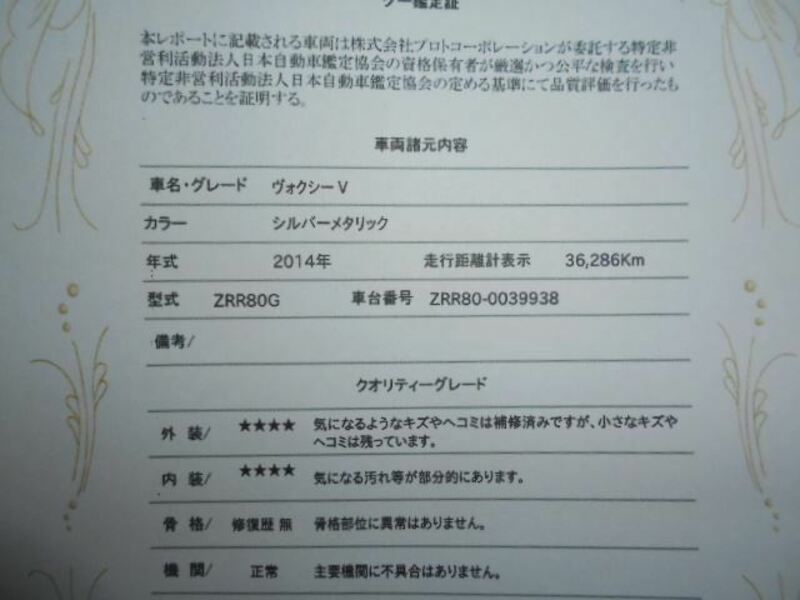 グー鑑定証
本レポートに記載される車両は株式会社プロトコーポレーションが委託する特定非
営利活動法人日本自動車鑑定協会の資格保有者が厳選かつ公平な検査を行い
特定非営利活動法人日本自動車鑑定協会の定める基準にて品質評価を行ったも
のであることを証明する。
車両諸元内容
車名・グレード ヴォクシー V
カラー シルバーメタリック
年式 2014年 走行距離計表示 36,286Km
型式 ZRR80G 車台番号 ZRR80-0039938
備考/
クオリティーグレード
外 装/ ★★★★ 気になるようなキズやヘコミは補修済みですが、小さなキズや
ヘコミは残っています。
内 装/ ★★★★ 気になる汚れ等が部分的にあります。
骨 格/ 修復歴 無 骨格部位に異常はありません。
機 関/ 正常 主要機関に不具合はありません。